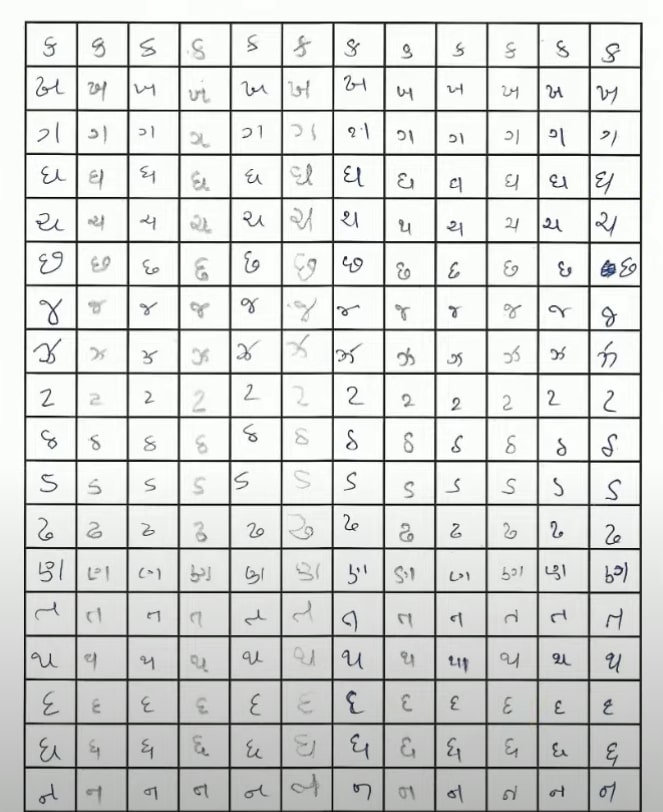 ક ક ક ક ક ક ક ક ક ક ક ક
ખ ખ ખ ખ ખ ખ ખ ખ ખ ખ ખ ખ
ગ ગ ગ ગ ગ ગ ગ ગ ગ ગ ગ ગ
ઘ ઘ ઘ ઘ ઘ ઘ ઘ ઘ ઘ ઘ ઘ ઘ
ચ ચ ચ ચ ચ ચ ચ ચ ચ ચ ચ ચ
છ છ છ છ છ છ છ છ છ છ છ છ
જ જ જ જ જ જ જ જ જ જ જ જ
ઝ ઝ ઝ ઝ ઝ ઝ ઝ ઝ ઝ ઝ ઝ ઝ
ટ ટ ટ ટ ટ ટ ટ ટ ટ ટ ટ ટ
ઠ ઠ ઠ ઠ ઠ ઠ ઠ ઠ ઠ ઠ ઠ ઠ
ડ ડ ડ ડ ડ ડ ડ ડ ડ ડ ડ ડ
ઢ ઢ ઢ ઢ ઢ ઢ ઢ ઢ ઢ ઢ ઢ ઢ
ણ ણ ણ ણ ણ ણ ણ ણ ણ ણ ણ ણ
ત ત ત ત ત ત ત ત ત ત ત ત
થ થ થ થ થ થ થ થ થ થ થ થ
દ દ દ દ દ દ દ દ દ દ દ દ
ધ ધ ધ ધ ધ ધ ધ ધ ધ ધ ધ ધ
ન ન ન ન ન ન ન ન ન ન ન ન